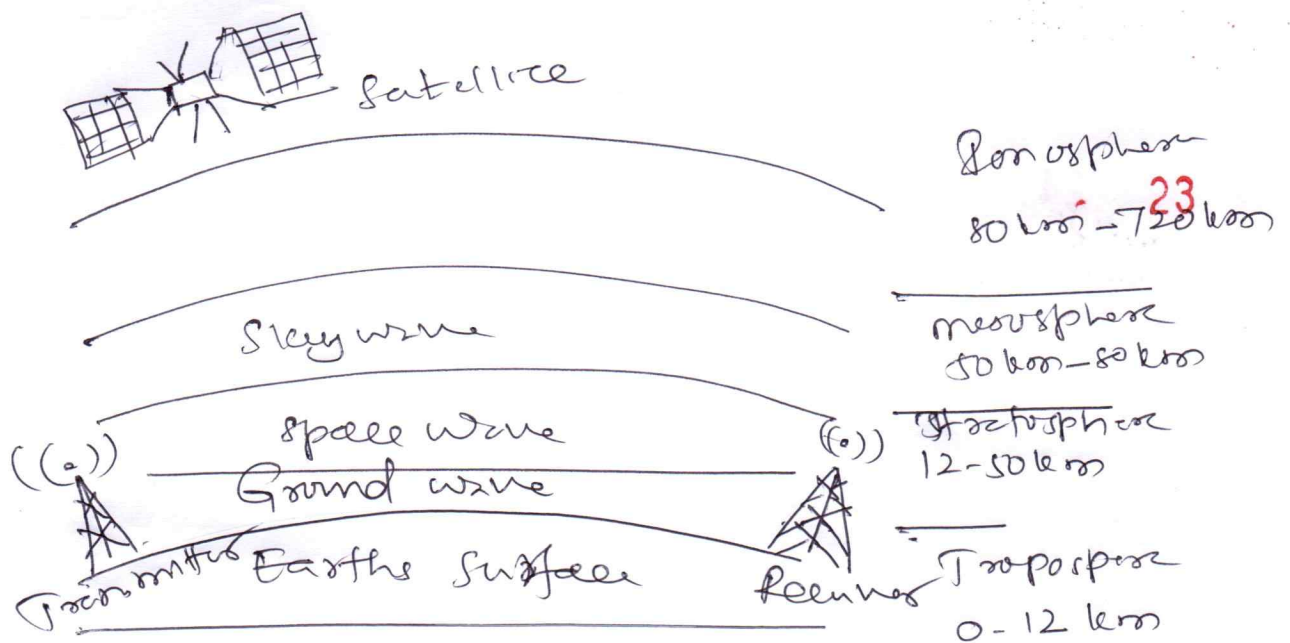 Satellite
Ionosphere
23
80 km - 720 km
Skywave
mesosphere
50 km - 80 km
space wave
Stratosphere
12-50 km
Ground wave
Transmitter
Earths Surface
Receiver
Tropospere
0-12 km